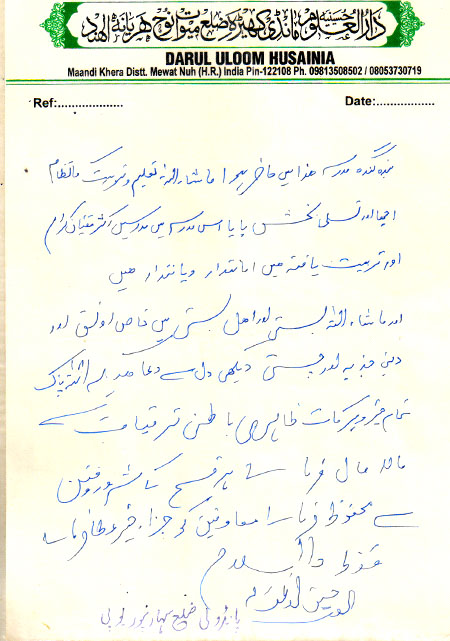 دارالعلوم حسینیہ مانڈی کھیڑہ ضلع میوات نوح ہریانہ الہند
DARUL ULOOM HUSAINIA
Maandi Khera Distt. Mewat Nuh (H.R.) India Pin-122108 Ph. 09813508502 / 08053730719
Ref:................... Date:.................
بندہ مدرسہ ھذا میں حاضر ہوا ماشاء اللہ تعلیم و تربیت کا نظام
اچھا اور تسلی بخش پایا اس مدرسہ میں مدرسین اکثر مفتیان کرام
اور تربیت یافتہ ھیں امانتدار دیانتدار ھیں
اور ماشاء اللہ بستی اور اھل بستی میں خاص رونق اور
دینی جذبہ اور چستی دیکھی دل سے دعا ھے کہ اللہ پاک
تمام خیر و برکات ظاہری باطنی ترقیات سے
مالا مال فرمائے ہر قسم کے شرور و فتن
سے محفوظ فرمائے معاونین کو جزاء خیر عطا فرمائے
فقط والسلام
العبد حسین احمد
پانڈولی ضلع سہارنپور یوپی